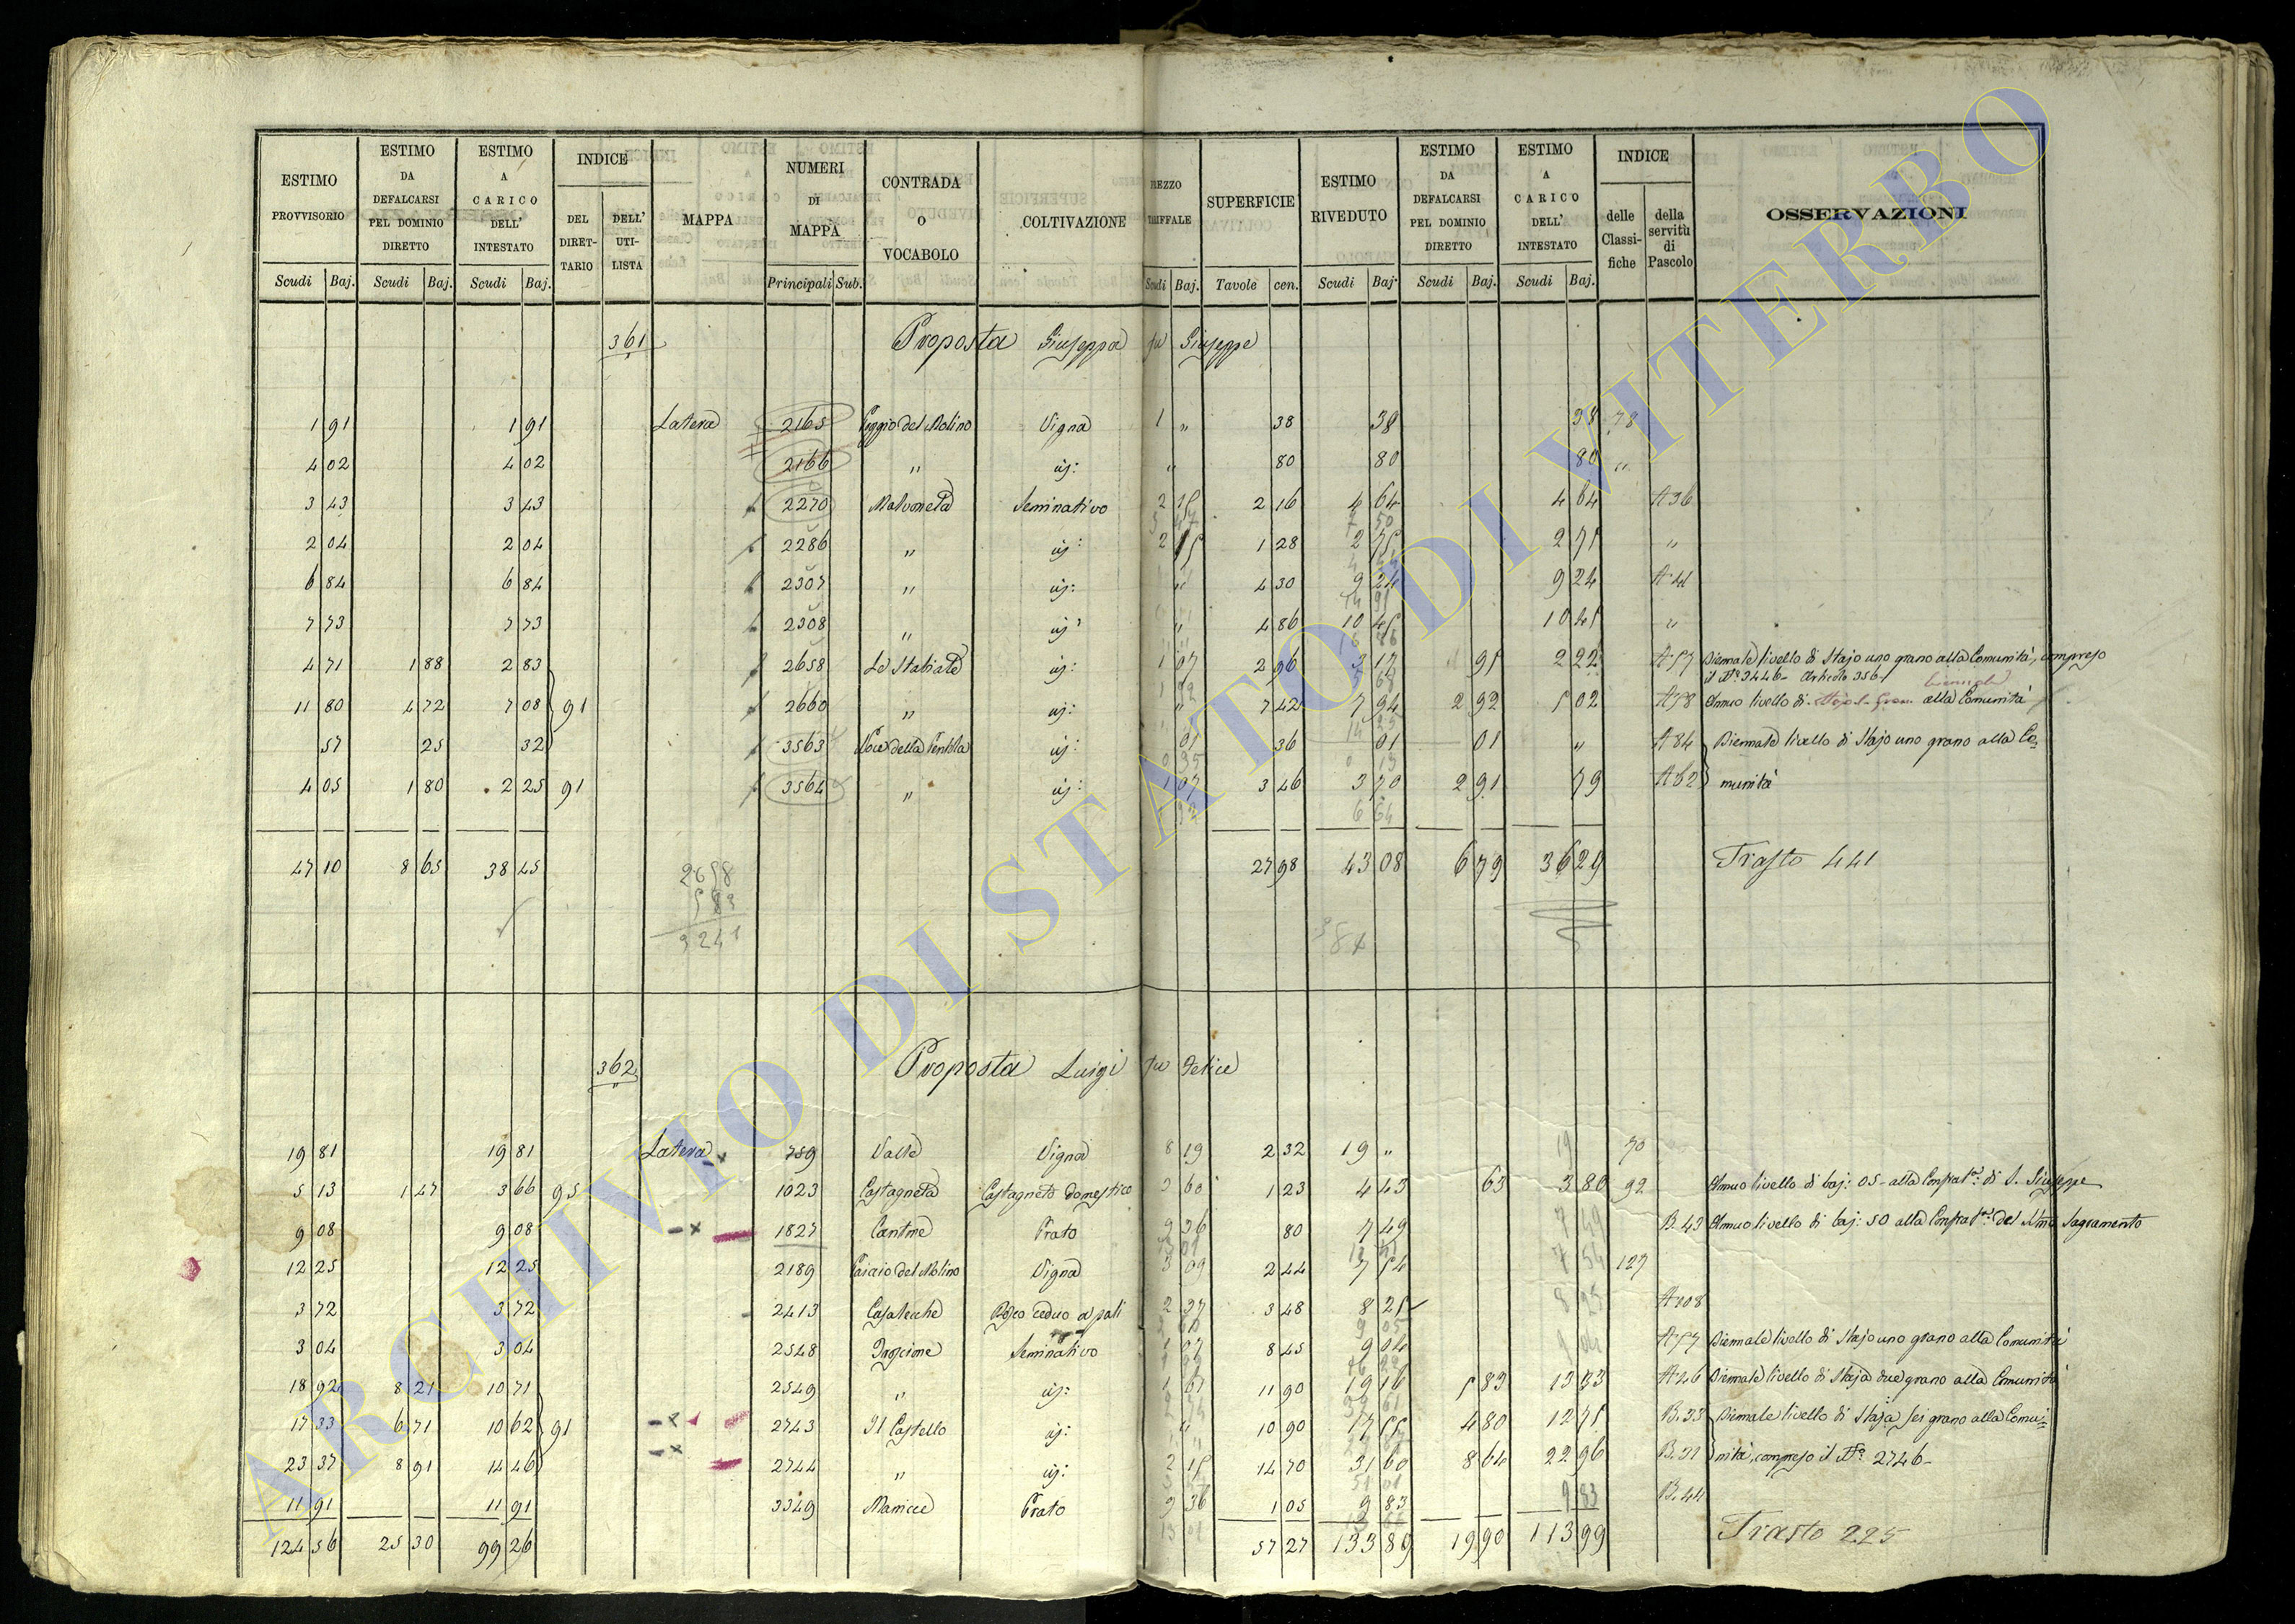 ESTIMO PROVVISORIO | ESTIMO DA DEFALCARSI PEL DOMINIO DIRETTO | ESTIMO A CARICO DELL' INTESTATO | INDICE | MAPPA | NUMERI DI MAPPA | CONTRADA O VOCABOLO | COLTIVAZIONE | SUPERFICIE | ESTIMO RIVEDUTO | ESTIMO DA DEFALCARSI PEL DOMINIO DIRETTO | ESTIMO A CARICO DELL' INTESTATO | INDICE | OSSERVAZIONI
DEL DIRETTARIO | DELL' UTILISTA | delle Classifiche | della servitù di Pascolo
Scudi | Baj. | Scudi | Baj. | Scudi | Baj. | Principali | Sub. | Scudi | Baj. | Tavole | cen. | Scudi | Baj. | Scudi | Baj. | Scudi | Baj.
361 Proposta Giuseppa fu Giuseppe
1 91 | 1 91 | Latera | 2165 | Poggio del Molino | Vigna | 1 " | 38 | 38 | 38 | 78
4 02 | 4 02 | 2166 | " | id: | " | 80 | 80 | 80 | "
3 43 | 3 43 | 2270 | Seminativo | 2 15 | 2 16 | 4 64 | 4 64 | A 36
2 04 | 2 04 | 2286 | " | id: | 2 15 | 1 28 | 2 75 | 2 75 | "
6 84 | 6 84 | 2307 | " | id: | " | 4 30 | 9 24 | 9 24 | A 41
7 73 | 7 73 | 2308 | " | id: | " | 4 86 | 10 45 | 10 45 | "
4 71 | 1 88 | 2 83 | 2658 | id: | 1 07 | 2 96 | 3 17 | 95 | 2 22 | A 57 | Biennale livello di Stajo uno grano alla Comunità, compreso
il N.º 3446 - Articolo 356
11 80 | 4 72 | 7 08 | 91 | 2660 | " | id: | " | 7 42 | 7 94 | 2 92 | 5 02 | A 58 | Annuo livello di alla Comunità
57 | 25 | 32 | 3563 | id: | 01 | 36 | 01 | 01 | " | A 84 | Biennale livello di Stajo uno grano alla Co-
4 05 | 1 80 | 2 25 | 91 | 3564 | " | id: | 1 07 | 3 46 | 3 70 | 2 91 | 79 | A 62 | munità
47 10 | 8 65 | 38 45 | 27 98 | 43 08 | 6 79 | 36 29 | Trasto 441
2658
583
3241
362 Proposta Luigi fu Felice
19 81 | 19 81 | Latera | 759 | Valle | Vigna | 8 19 | 2 32 | 19 " | 19 | 70
5 13 | 1 47 | 3 66 | 95 | 1023 | Castagneta | Castagneto domestico | 3 60 | 1 23 | 4 43 | 63 | 3 80 | 92 | Annuo livello di baj: 05 - alla Confrat.ª di S. Giuseppe
9 08 | 9 08 | 1827 | Cantine | Prato | 9 36 | 80 | 7 49 | 7 49 | B. 43 | Annuo livello di baj: 50 alla Confrat.ª del SSmo Sagramento
12 25 | 12 25 | 2189 | Vigna | 3 09 | 2 44 | 7 54 | 7 54 | 127
3 72 | 3 72 | 2413 | Bosco ceduo a pali | 2 37 | 3 48 | 8 25 | 8 25 | A 108
3 04 | 3 04 | 2548 | Seminativo | 1 07 | 8 45 | 9 04 | 9 04 | A 57 | Biennale livello di Stajo uno grano alla Comunità
18 92 | 8 21 | 10 71 | 2549 | " | id: | 1 61 | 11 90 | 19 16 | 5 83 | 13 33 | A 46 | Biennale livello di Staja due grano alla Comunità
17 33 | 6 71 | 10 62 | 91 | 2743 | Il Castello | id: | " | 10 90 | 17 55 | 4 80 | 12 75 | B. 33 | Biennale livello di Staja sei grano alla Comu-
23 37 | 8 91 | 14 46 | 2744 | " | id: | 2 15 | 14 70 | 31 60 | 8 64 | 22 96 | B. 31 | nità, compreso il N.º 2746 -
11 91 | 11 91 | 3349 | Prato | 9 36 | 1 05 | 9 83 | 9 83 | B. 44
124 56 | 25 30 | 99 26 | 57 27 | 133 89 | 19 90 | 113 99 | Trasto 225
ARCHIVIO DI STATO DI VITERBO